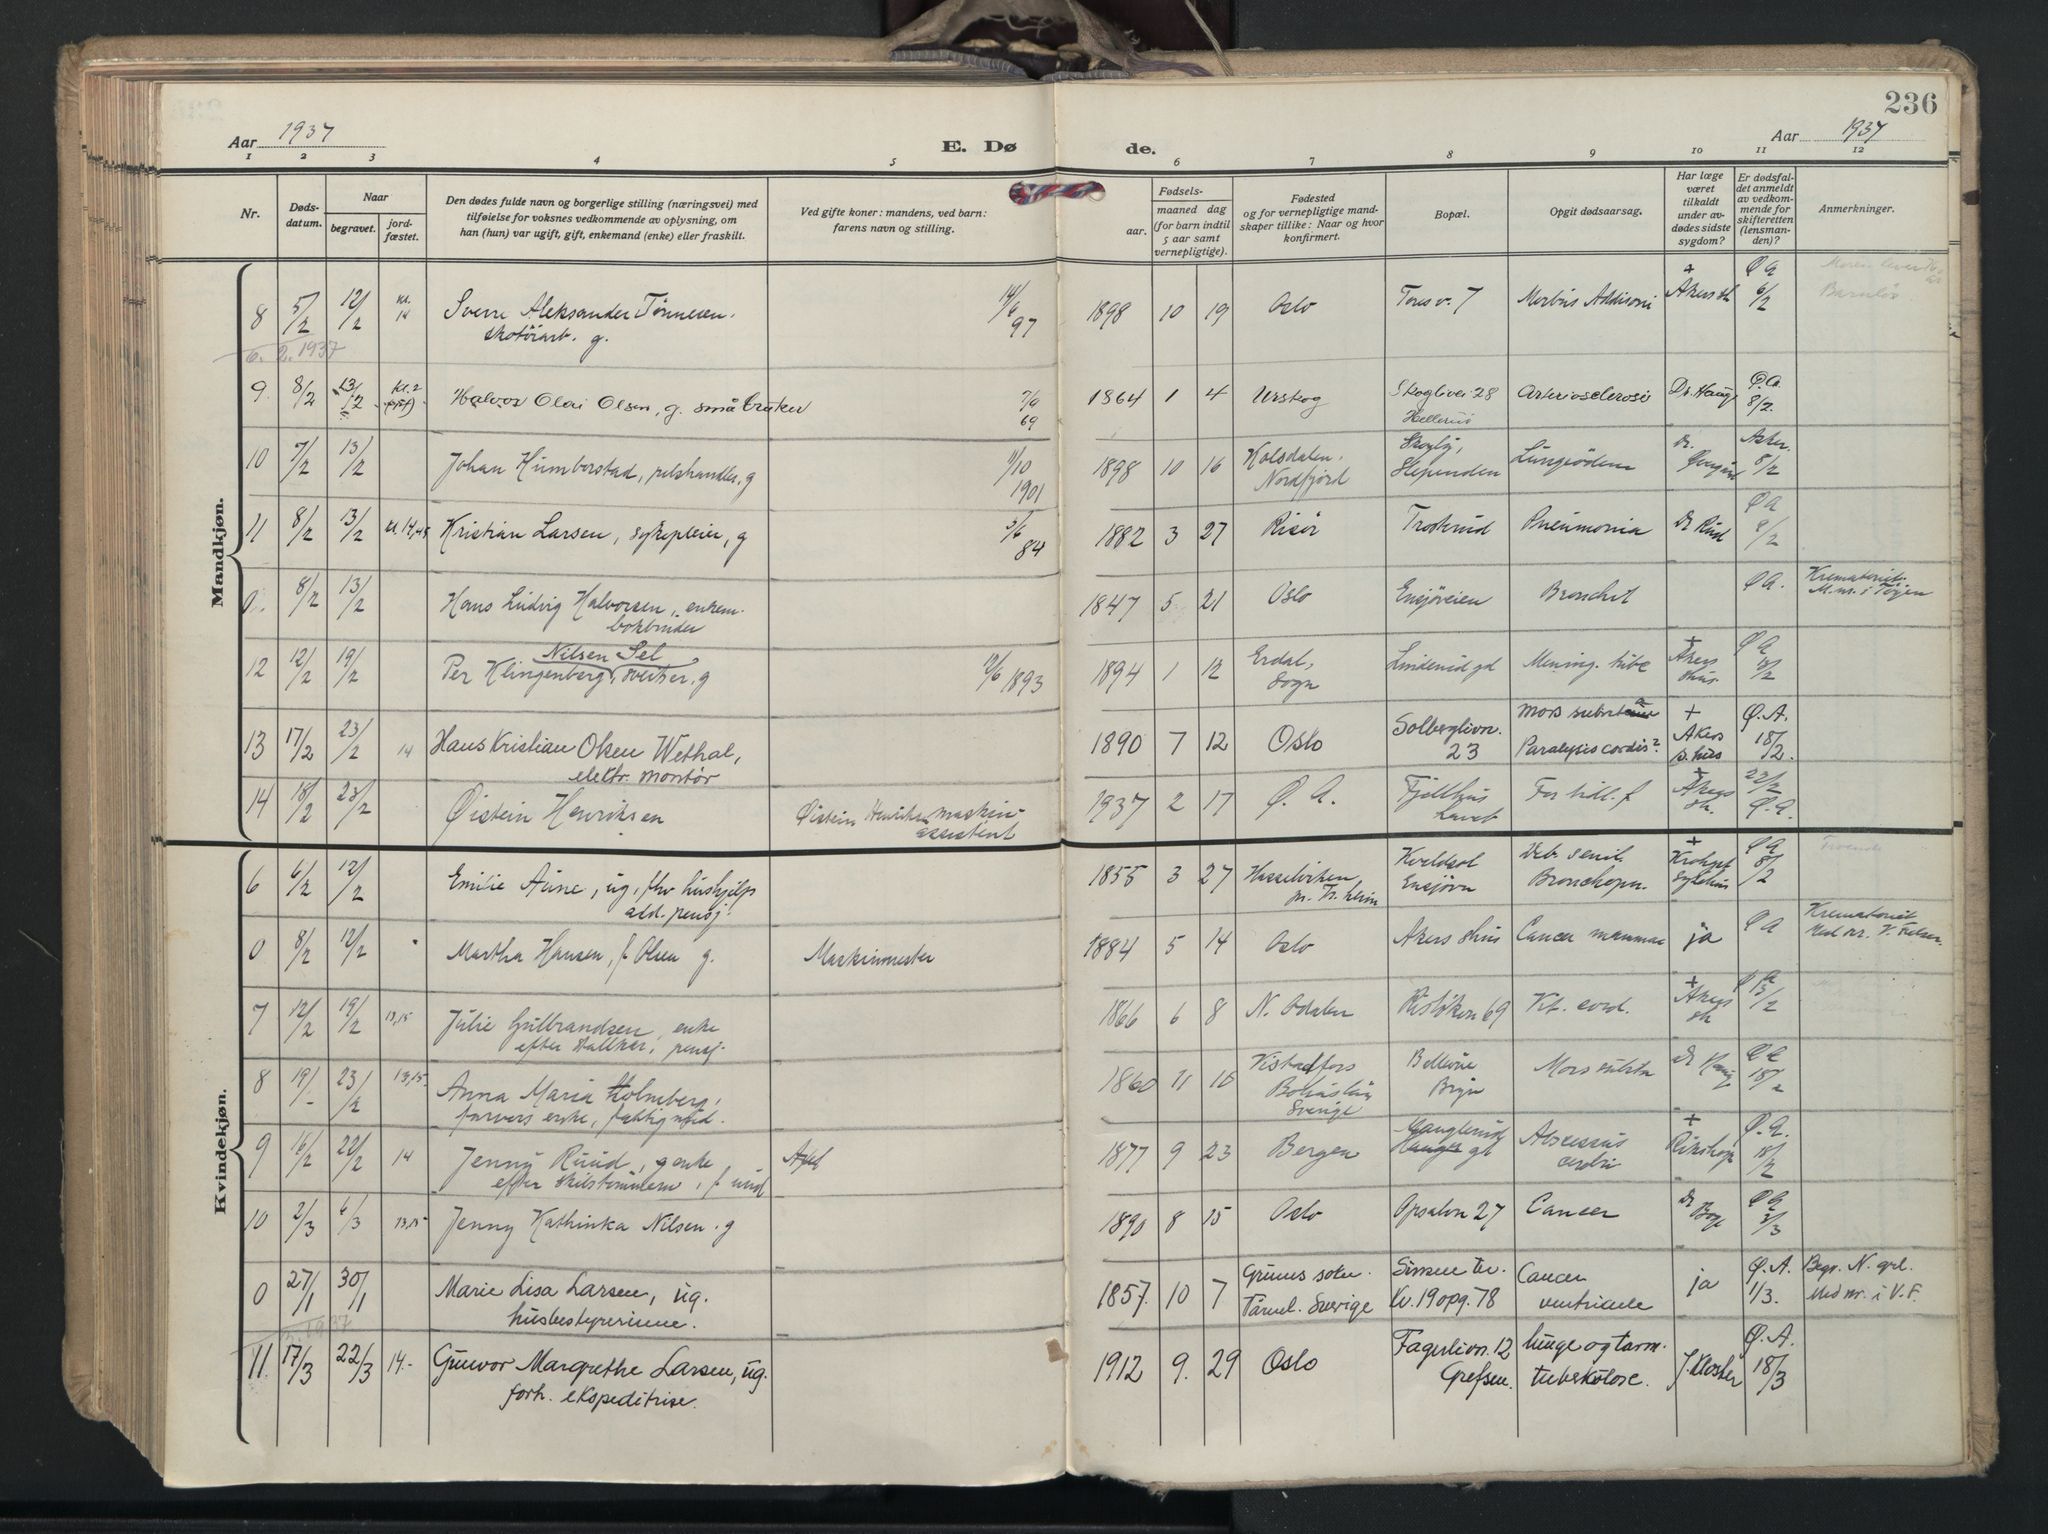 236
Aar 1937
E. Dø
de.
Aar 1937
1 2 3 4 5 6 7 8 9 10 11 12
Nr.
Døds-
datum.
Naar
begravet.
jord-
fæstet.
Den dødes fulde navn og borgerlige stilling (næringsvei) med
tilføielse for voksnes vedkommende av oplysning, om
han (hun) var ugift, gift, enkemand (enke) eller fraskilt.
Ved gifte koner: mandens, ved barn:
farens navn og stilling.
Fødsels-
aar.
maaned dag
(for barn indtil
5 aar samt
vernepligtige).
Fødested
og for vernepligtige mand-
skaper tillike: Naar og hvor
konfirmert.
Bopæl.
Opgit dødsaarsag.
Har læge
været
tilkaldt
under av-
dødes sidste
sygdom?
Er dødsfal-
det anmeldt
av vedkom-
mende for
skifteretten
(lensman-
den)?
Anmerkninger.
Mandkjøn.
8 5/2 12/2 kl. 14 Sverre Aleksander Tønnesen. 14/6 97 1898 10 19 Oslo Toresv. 7 Morbus Addisoni + Akers sh Ø A 6/2
skotøiarb. g. Barnløs
6. 2. 1937
9 8/2 13/2 Kl. 2 Halvor Olai Olsen, g. småbruker 7/6 69 1864 1 4 Urskog Skoglivei 28 Arteriosclerosi Dr. Haug Ø.A. 8/2.
Hellerud
10 7/2 13/2 Johan Humberstad, pelshandler. g 11/10 1901 1898 10 16 Nordfjord Slependen Lungeødem dr. Asker. 8/2
11 8/2 13/2 kl. 14,45 Kristian Larsen, sykepleier, g 5/6 84 1882 3 27 Risør Trosterud Pneumonia dr Rud Ø A 9/2
0 8/2 13/2 Hans Ludvig Halvorsen, enkem. 1847 5 21 Oslo Ensjøveien Bronchit Ø A. Krematoriet.
bokbinder M. nr. i Tøyen
12 12/2 19/2 Nilsen Sel
Per Klingenberg, g 12/6 1893 1894 1 12 Erdal, Sogn Linderud gd Mening. tub. + Akers shus. Ø A
13 17/2 23/2 14 Hans Kristian Olsen Wethal, 1890 7 12 Oslo Solberglivn. 23 Mors subita Paralysis cordis? + Akers s.hus Ø.A. 18/2.
elektr. montør
14 18/2 23/2 Øistein Henriksen Øistein Henriksen maskin- 1937 2 17 Ø. A. Fjellhus For tidl. f + Akers sh. 22/2 Ø.A.
assistent
Kvindekjøn.
6 6/2 12/2 Emilie Aune, ug, fhv hushjelp 1855 3 27 Kveldsol Deb. senil. + Krohgst Sykehus Ø A 8/2
ald. pensj. Ensjøvn Bronchopn.
0 8/2 12/2 Martha Hansen, f. Olsen g. Maskinmester 1884 5 14 Oslo Akers shus Cancer mammae ja Ø A Krematoriet
7 12/2 19/2 13,15 Julie Gulbrandsen, enke 1866 6 8 N. Odalen Risløkken 69 Vit. cord. + Akers sh Ø A 13/2
efter pensj.
8 19/- 23/2 13,15 Anna Maria Holmberg, 1860 11 Bohuslän Sverige Bellevue Bryn Mors subita dr Haug Ø A 18/2
farvers enke,
9 16/2 22/2 14 Jenny Ruud, enke 1877 9 23 Bergen Manglerud gd Abscessus cerebri + Rikshosp Ø.A. 18/2
efter
10 2/3 6/3 13,15 Jenny Kathinka Nilsen. g 1890 8 15 Oslo Opsalvn 27 Cancer dr Ø A 3/3
0 27/1 30/1 Marie Lisa Larsen, ug. 1857. 10 7 Grums sokn. Cancer ja Ø.A. 1/3. Begr. N. grl.
husbestyrerinne. Värml. Sverige Kv. 19 opg. 78 ventriculi Med nr. i V. F.
1937
11 17/3 22/3 14.- Gunvor Margrethe Larsen, ug. 1912 9. 29 Oslo Fagerlivn. 12 lunge og tarm- J. Kloster Ø.A. 18/3
forh. ekspeditrise. Grefsen. tuberkulose.